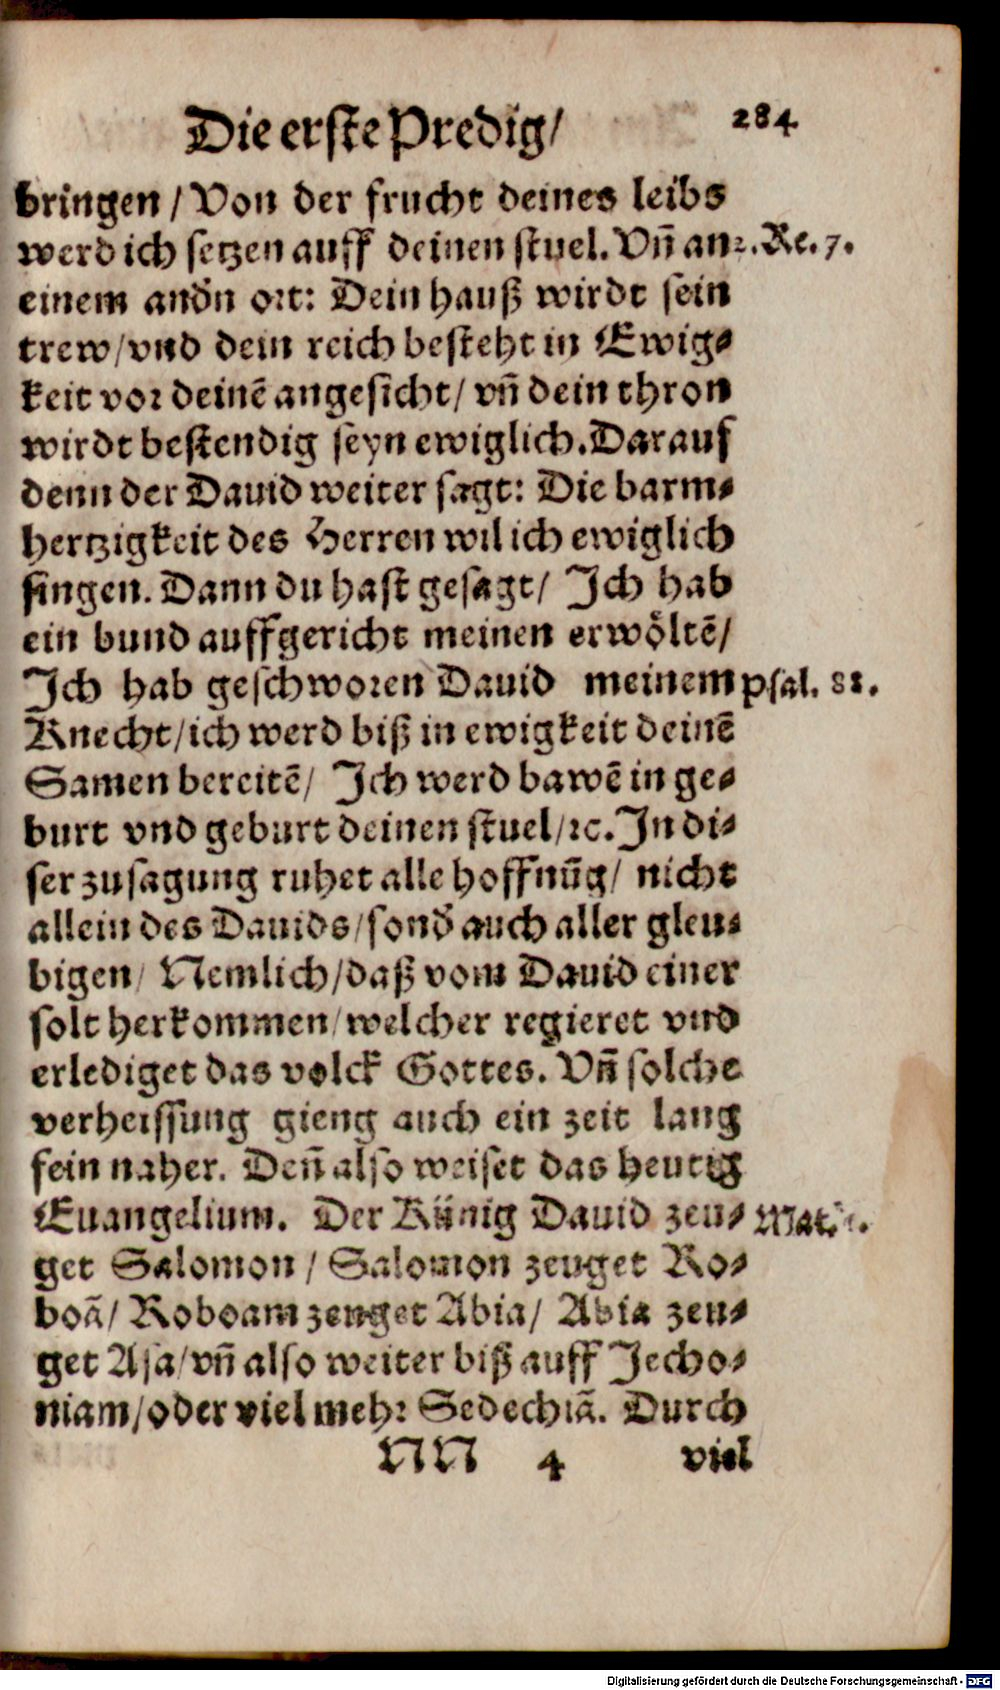 Die erste Predig/ 284
bringen / Von der frucht deines leibs
werd ich setzen auff deinen stuel. Vñ an 2. Re. 7.
einem andn ort: Dein hauß wirdt sein
trew/vnd dein reich besteht in Ewig⸗
keit vor deinẽ angesicht/ vñ dein thron
wirdt bestendig seyn ewiglich. Darauf
denn der Dauid weiter sagt: Die barm⸗
hertzigkeit des Herren wil ich ewiglich
singen. Dann du hast gesagt/ Ich hab
ein bund auffgericht meinen erwöltẽ/
Ich hab geschworen Dauid meinem psal. 88.
Knecht/ich werd biß in ewigkeit deinẽ
Samen bereitẽ/ Ich werd bawẽ in ge⸗
burt vnd geburt deinen stuel/ꝛc. In di⸗
ser zusagung ruhet alle hoffnũg/ nicht
allein des Dauids/sond auch aller gleu⸗
bigen/ Nemlich/daß vom Dauid einer
solt herkommen/welcher regieret vnd
erlediget das volck Gottes. Vñ solche
verheissung gieng auch ein zeit lang
fein naher. Deñ also weiset das heutig
Euangelium. Der Künig Dauid zeu⸗ Mat. 1.
get Salomon / Salomon zeuget Ro⸗
boã/ Roboam zeuget Abia/ Abia zeu⸗
get Asa/vñ also weiter biß auff Jecho⸗
niam/oder viel mehr Sedechiã. Durch
NN 4 viel
Digitalisierung gefördert durch die Deutsche Forschungsgemeinschaft - DFG